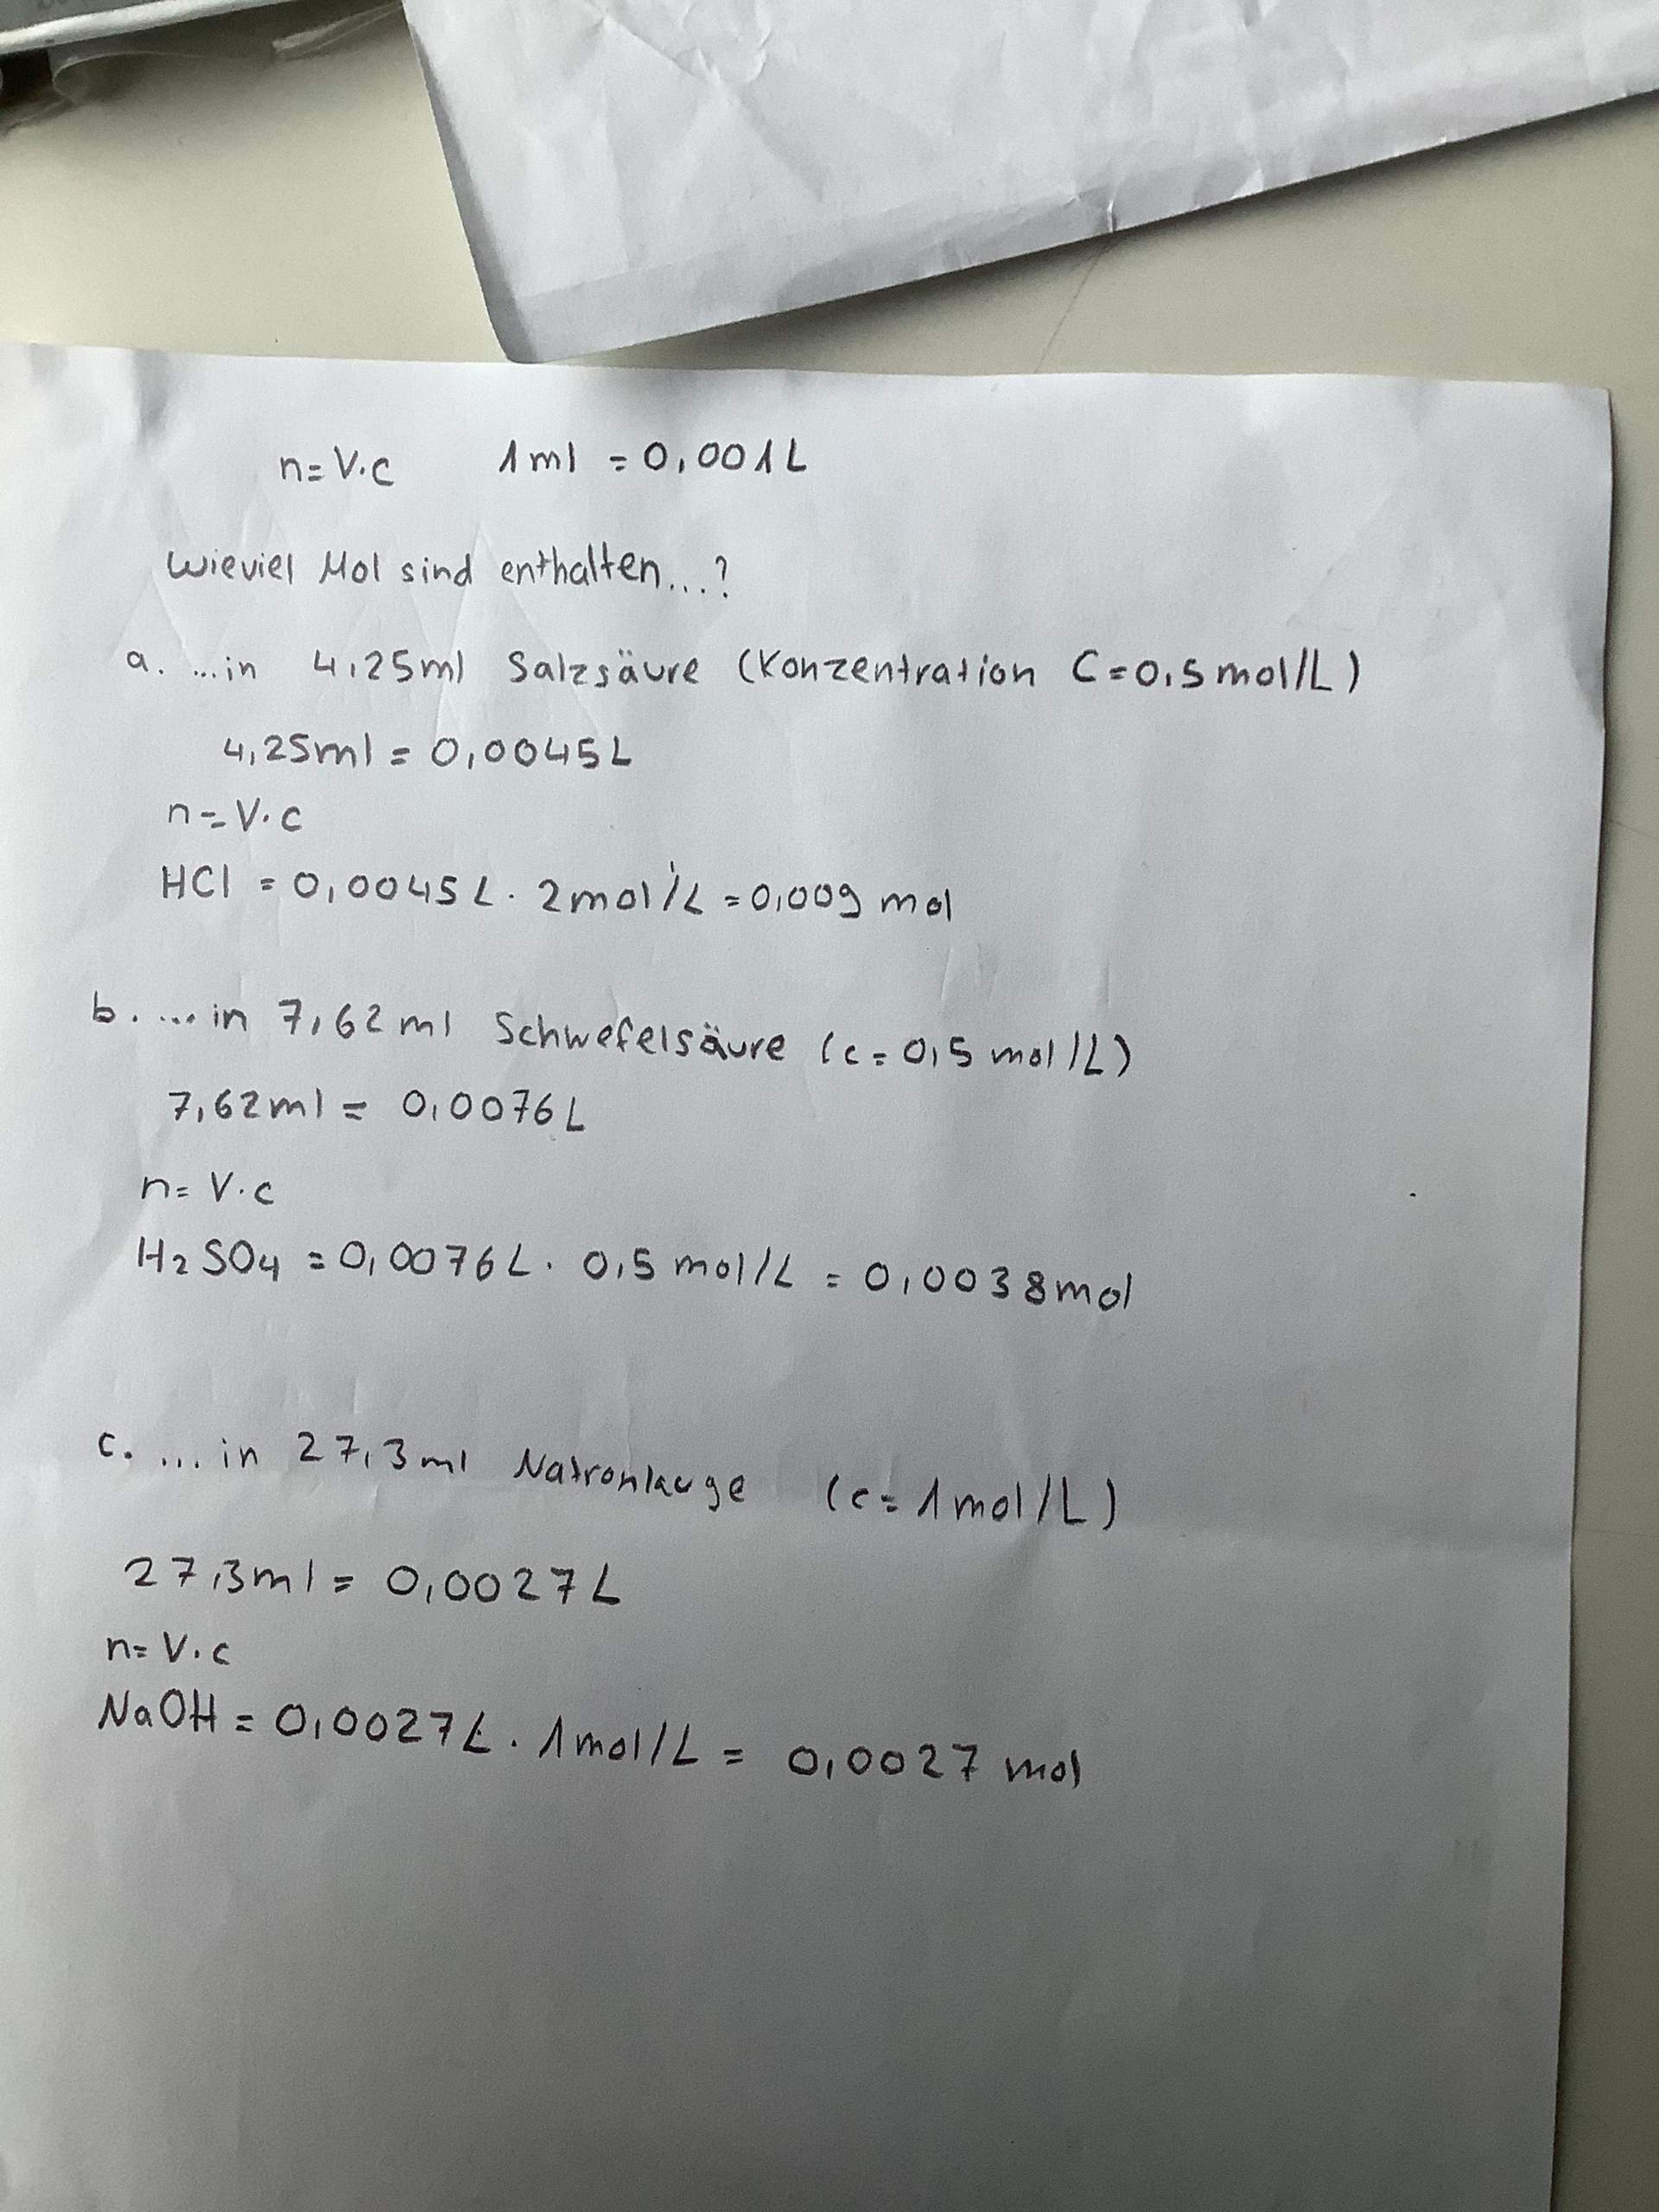 n=V·c 1ml = 0,001L
Wieviel Mol sind enthalten...?
a. ...in 4,25ml Salzsäure (Konzentration C=0,5mol/L)
4,25ml = 0,0045L
n=V·c
HCl = 0,0045L · 2mol/L = 0,009 mol
b. ...in 7,62ml Schwefelsäure (c=0,5 mol/L)
7,62ml = 0,0076L
n= V·c
H2SO4 = 0,0076L · 0,5 mol/L = 0,0038mol
c. ...in 27,3ml Natronlauge (c=1mol/L)
27,3ml = 0,0027L
n= V·c
NaOH = 0,0027L · 1mol/L = 0,0027 mol